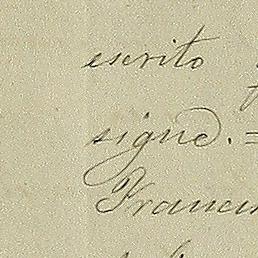 escrito
signo. =
Franci